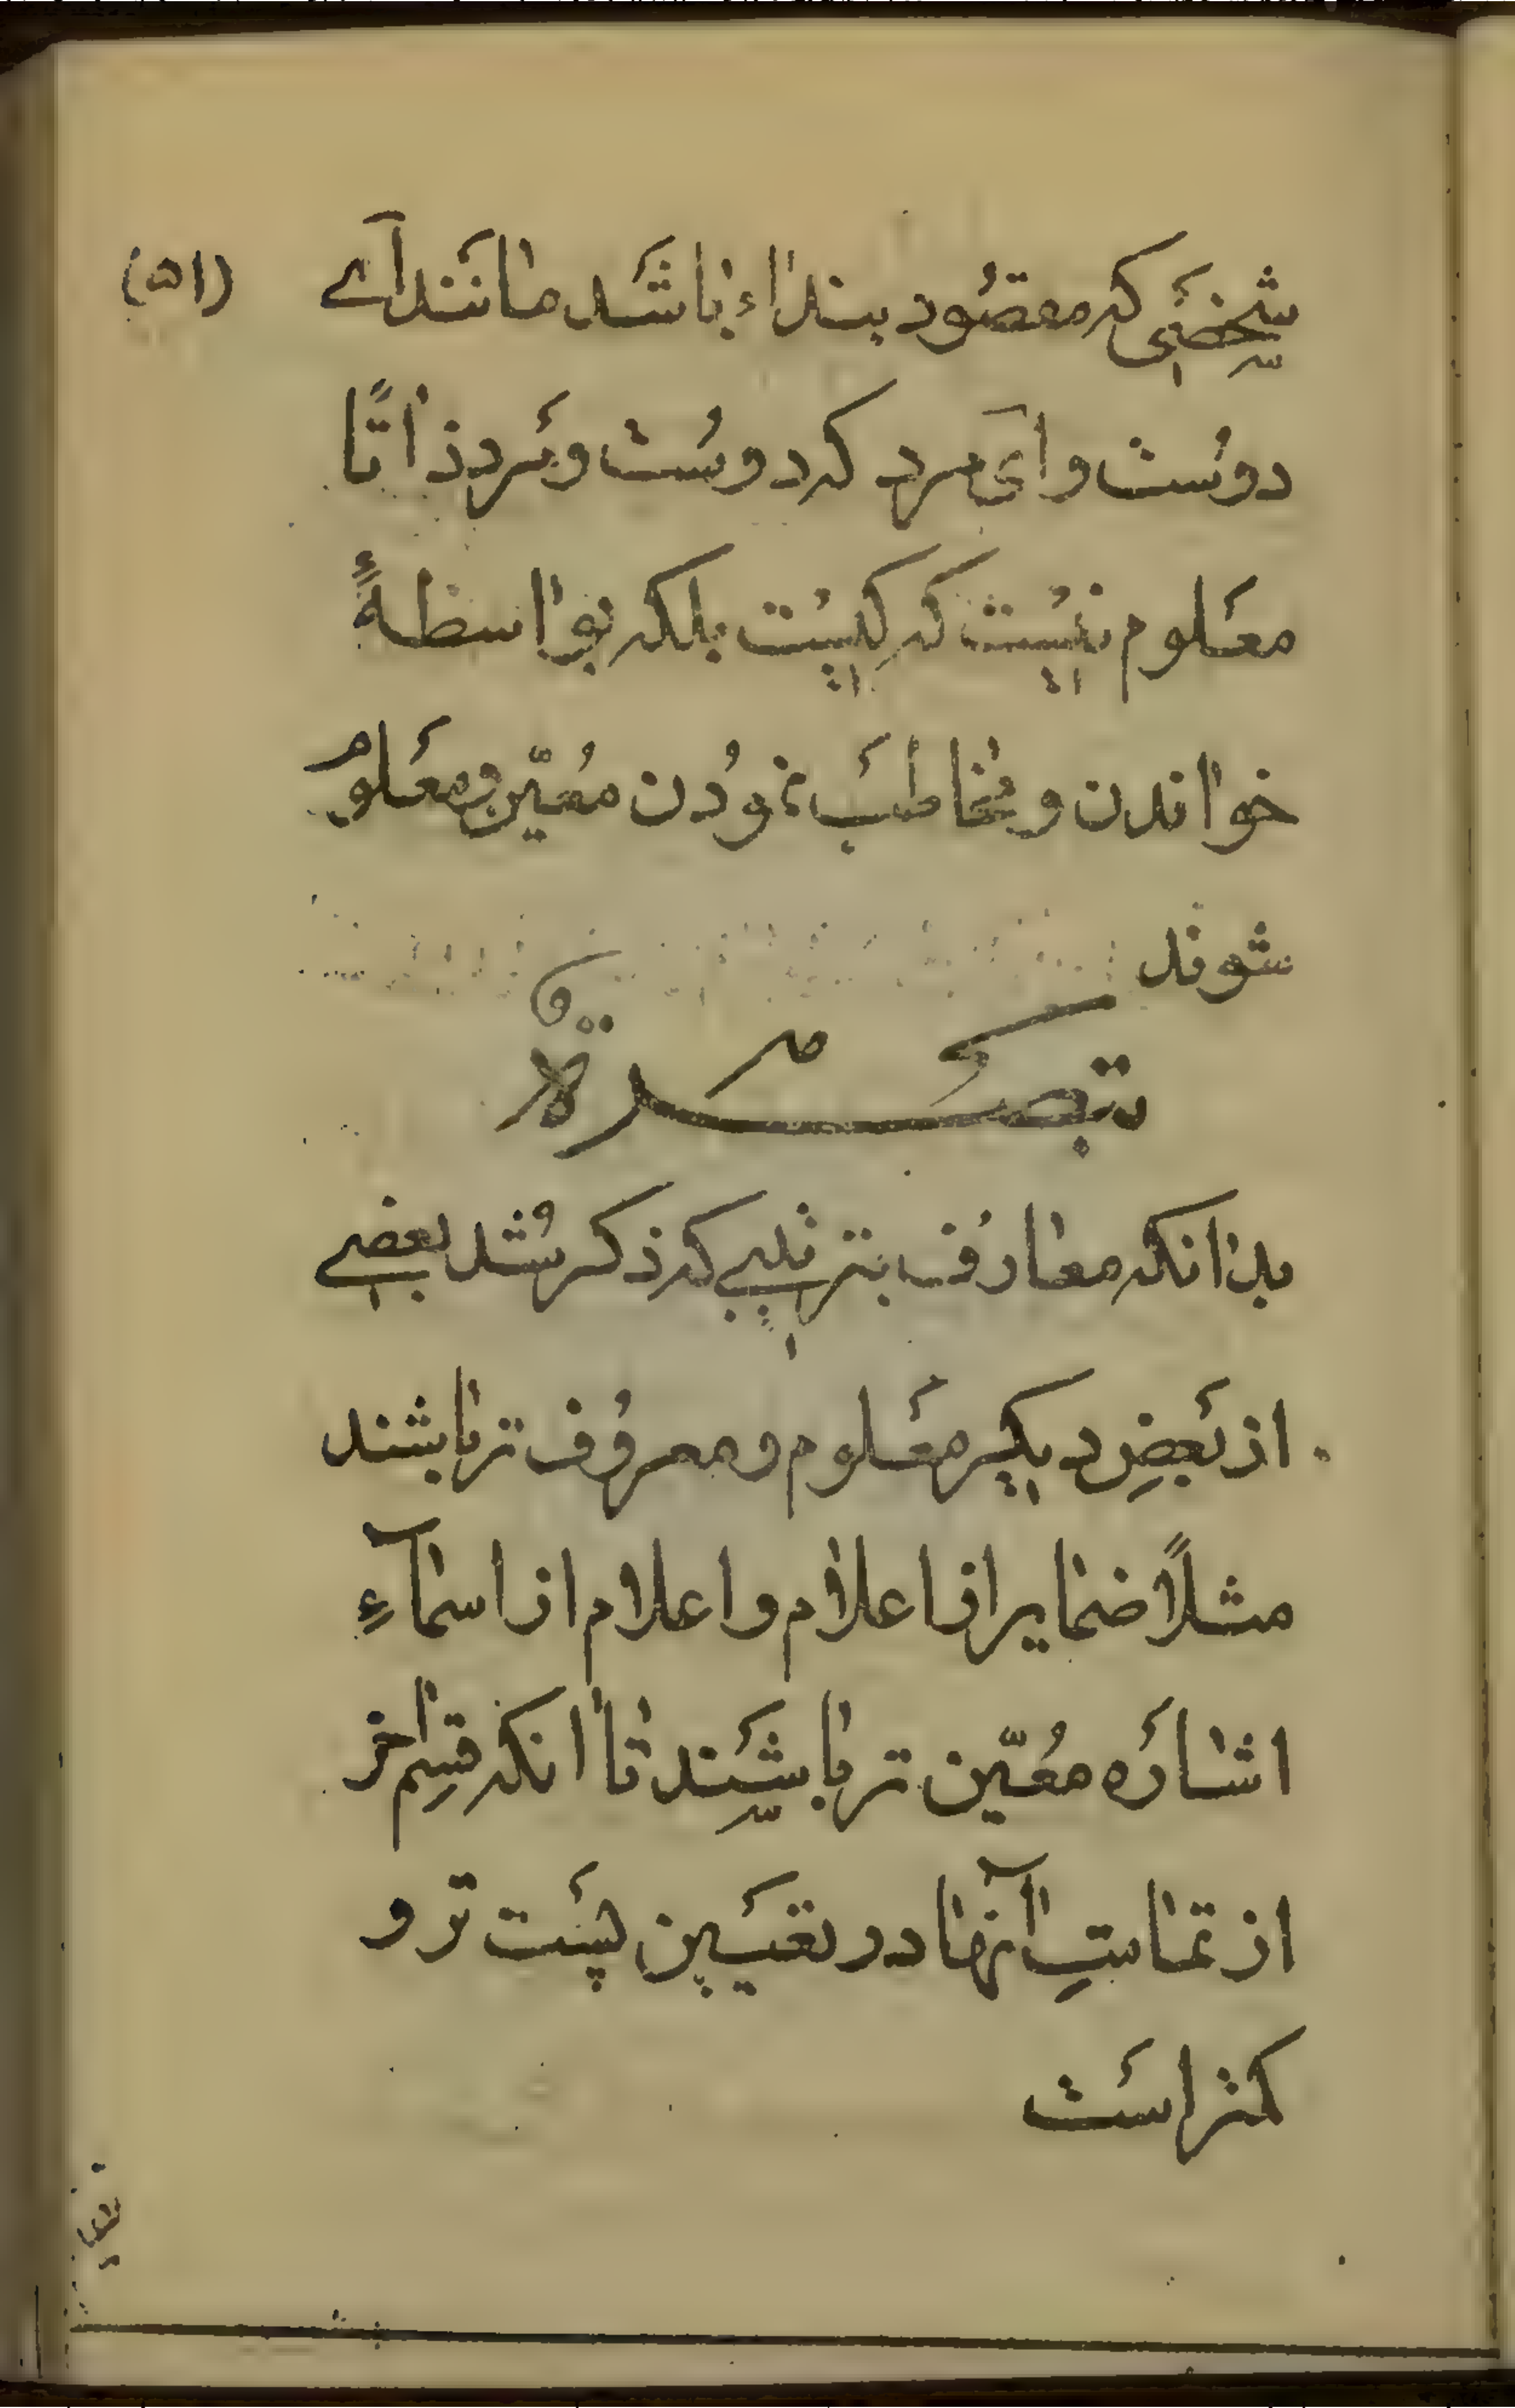 (۵۱)
شخصی که مقصود بنداء باشد مانند آے
دوست و آی مرد که دوست و مرد ذاتًا
معلوم نیست که کیست بلکه بواسطهٔ
خواندن و مخاطب نمودن معیّن و معلوم
شوند
تبصرة
بدانکه معارف بترتیبی که ذکر شد بعضے
از بعضِ دیگر معلوم و معروف تر باشند
مثلاً ضمایر از اعلام و اعلام از اسمآءِ
اشاره معیّن تر باشند تا انکه قسم اخر
از تمامتِ آنها در تعیین پست تر و
کمتر است